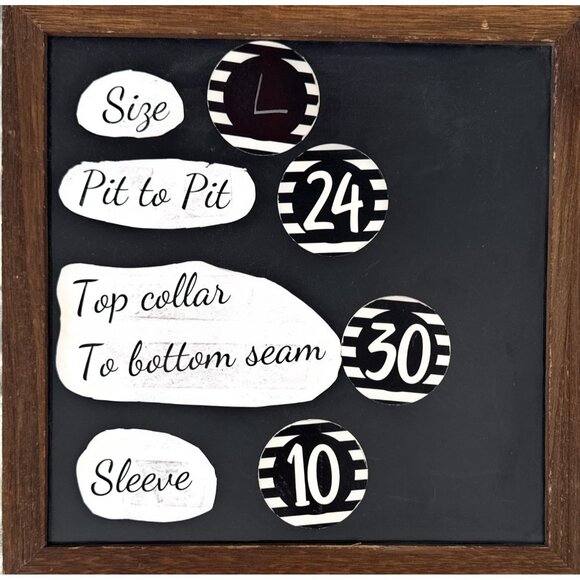 Size L
Pit to Pit 24
Top collar
To bottom seam 30
Sleeve 10